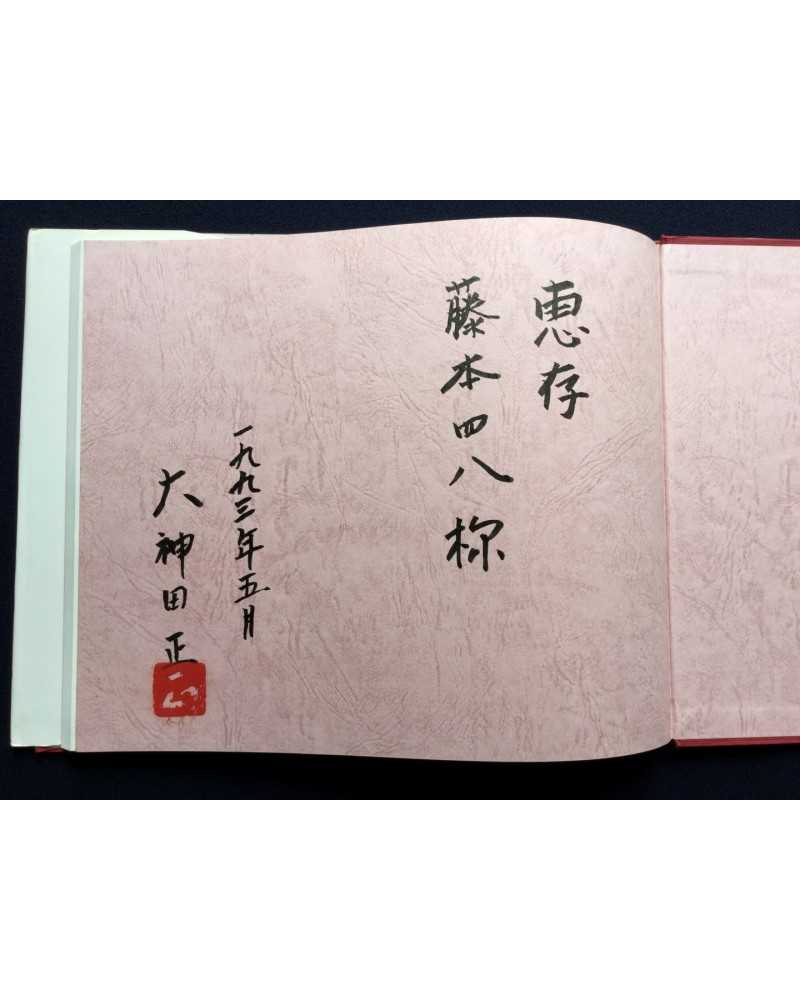 恵存
藤本四八様
一九九三年五月
大神田正